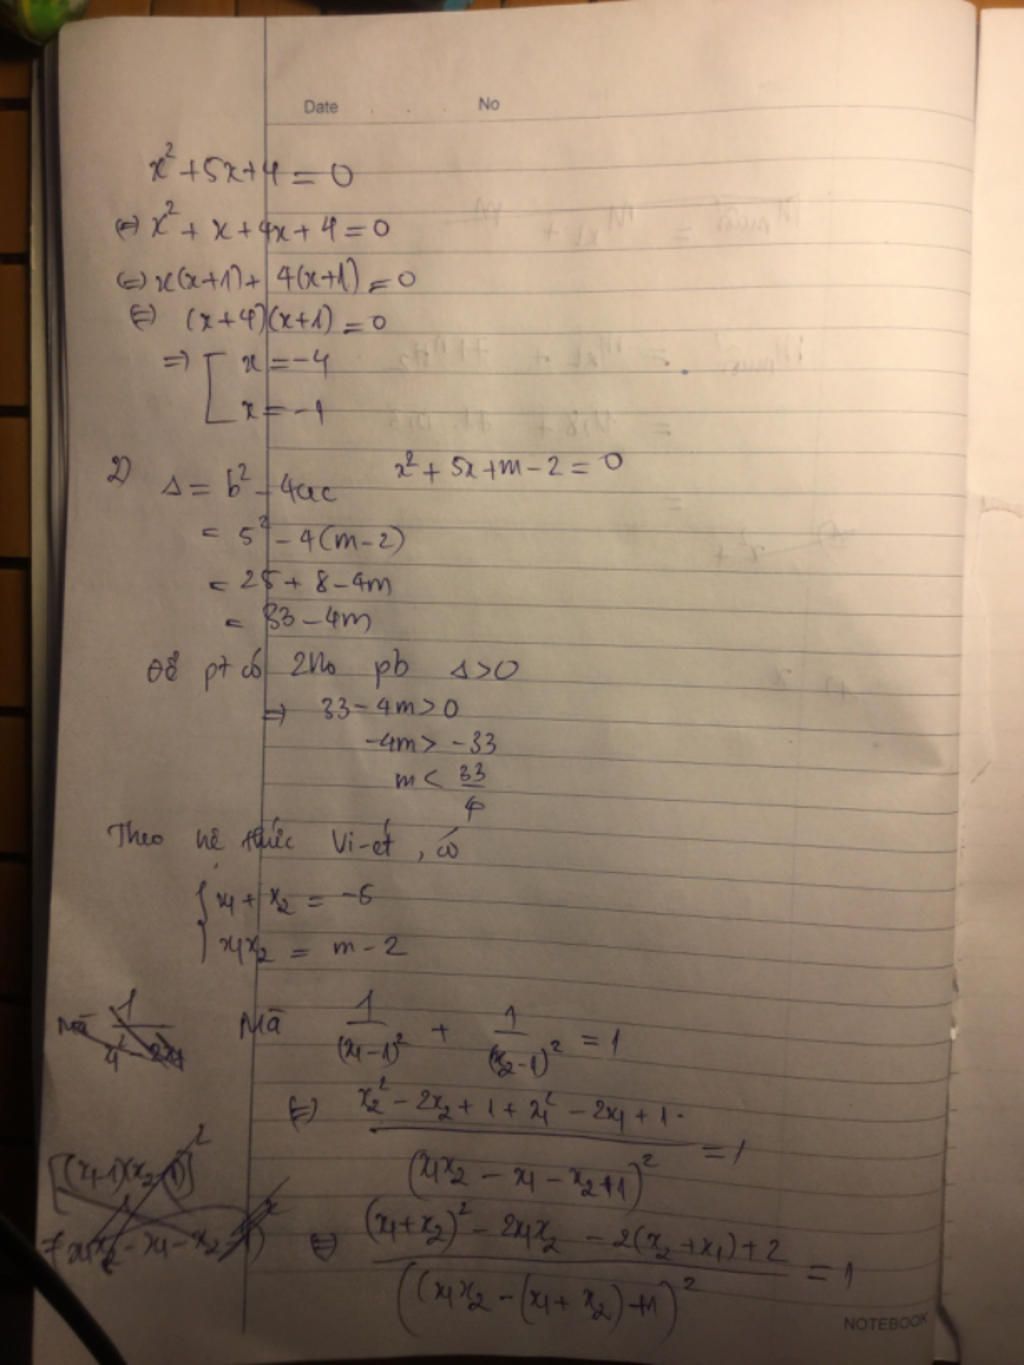 Date No
x² + 5x + 4 = 0
(=) x² + x + 4x + 4 = 0
(=) x(x+1) + 4(x+1) = 0
(=) (x+4)(x+1) = 0
=> [ x = -4
x = -1
2) x² + 5x + m - 2 = 0
Δ = b² - 4ac
= 5² - 4(m-2)
= 25 + 8 - 4m
= 33 - 4m
Để pt có 2No pb Δ>0
=> 33 - 4m > 0
-4m > -33
m < 33/4
Theo hệ thức Vi-ét, có
{ x₁ + x₂ = -5
x₁x₂ = m - 2
Mà 1/(x₁-1)² + 1/(x₂-1)² = 1
(=) (x₂² - 2x₂ + 1 + x₁² - 2x₁ + 1)/(x₁x₂ - x₁ - x₂+1)² = 1
(=) ((x₁+x₂)² - 2x₁x₂ - 2(x₂+x₁) + 2)/((x₁x₂ - (x₁+x₂) + 1)² = 1
NOTEBOOK